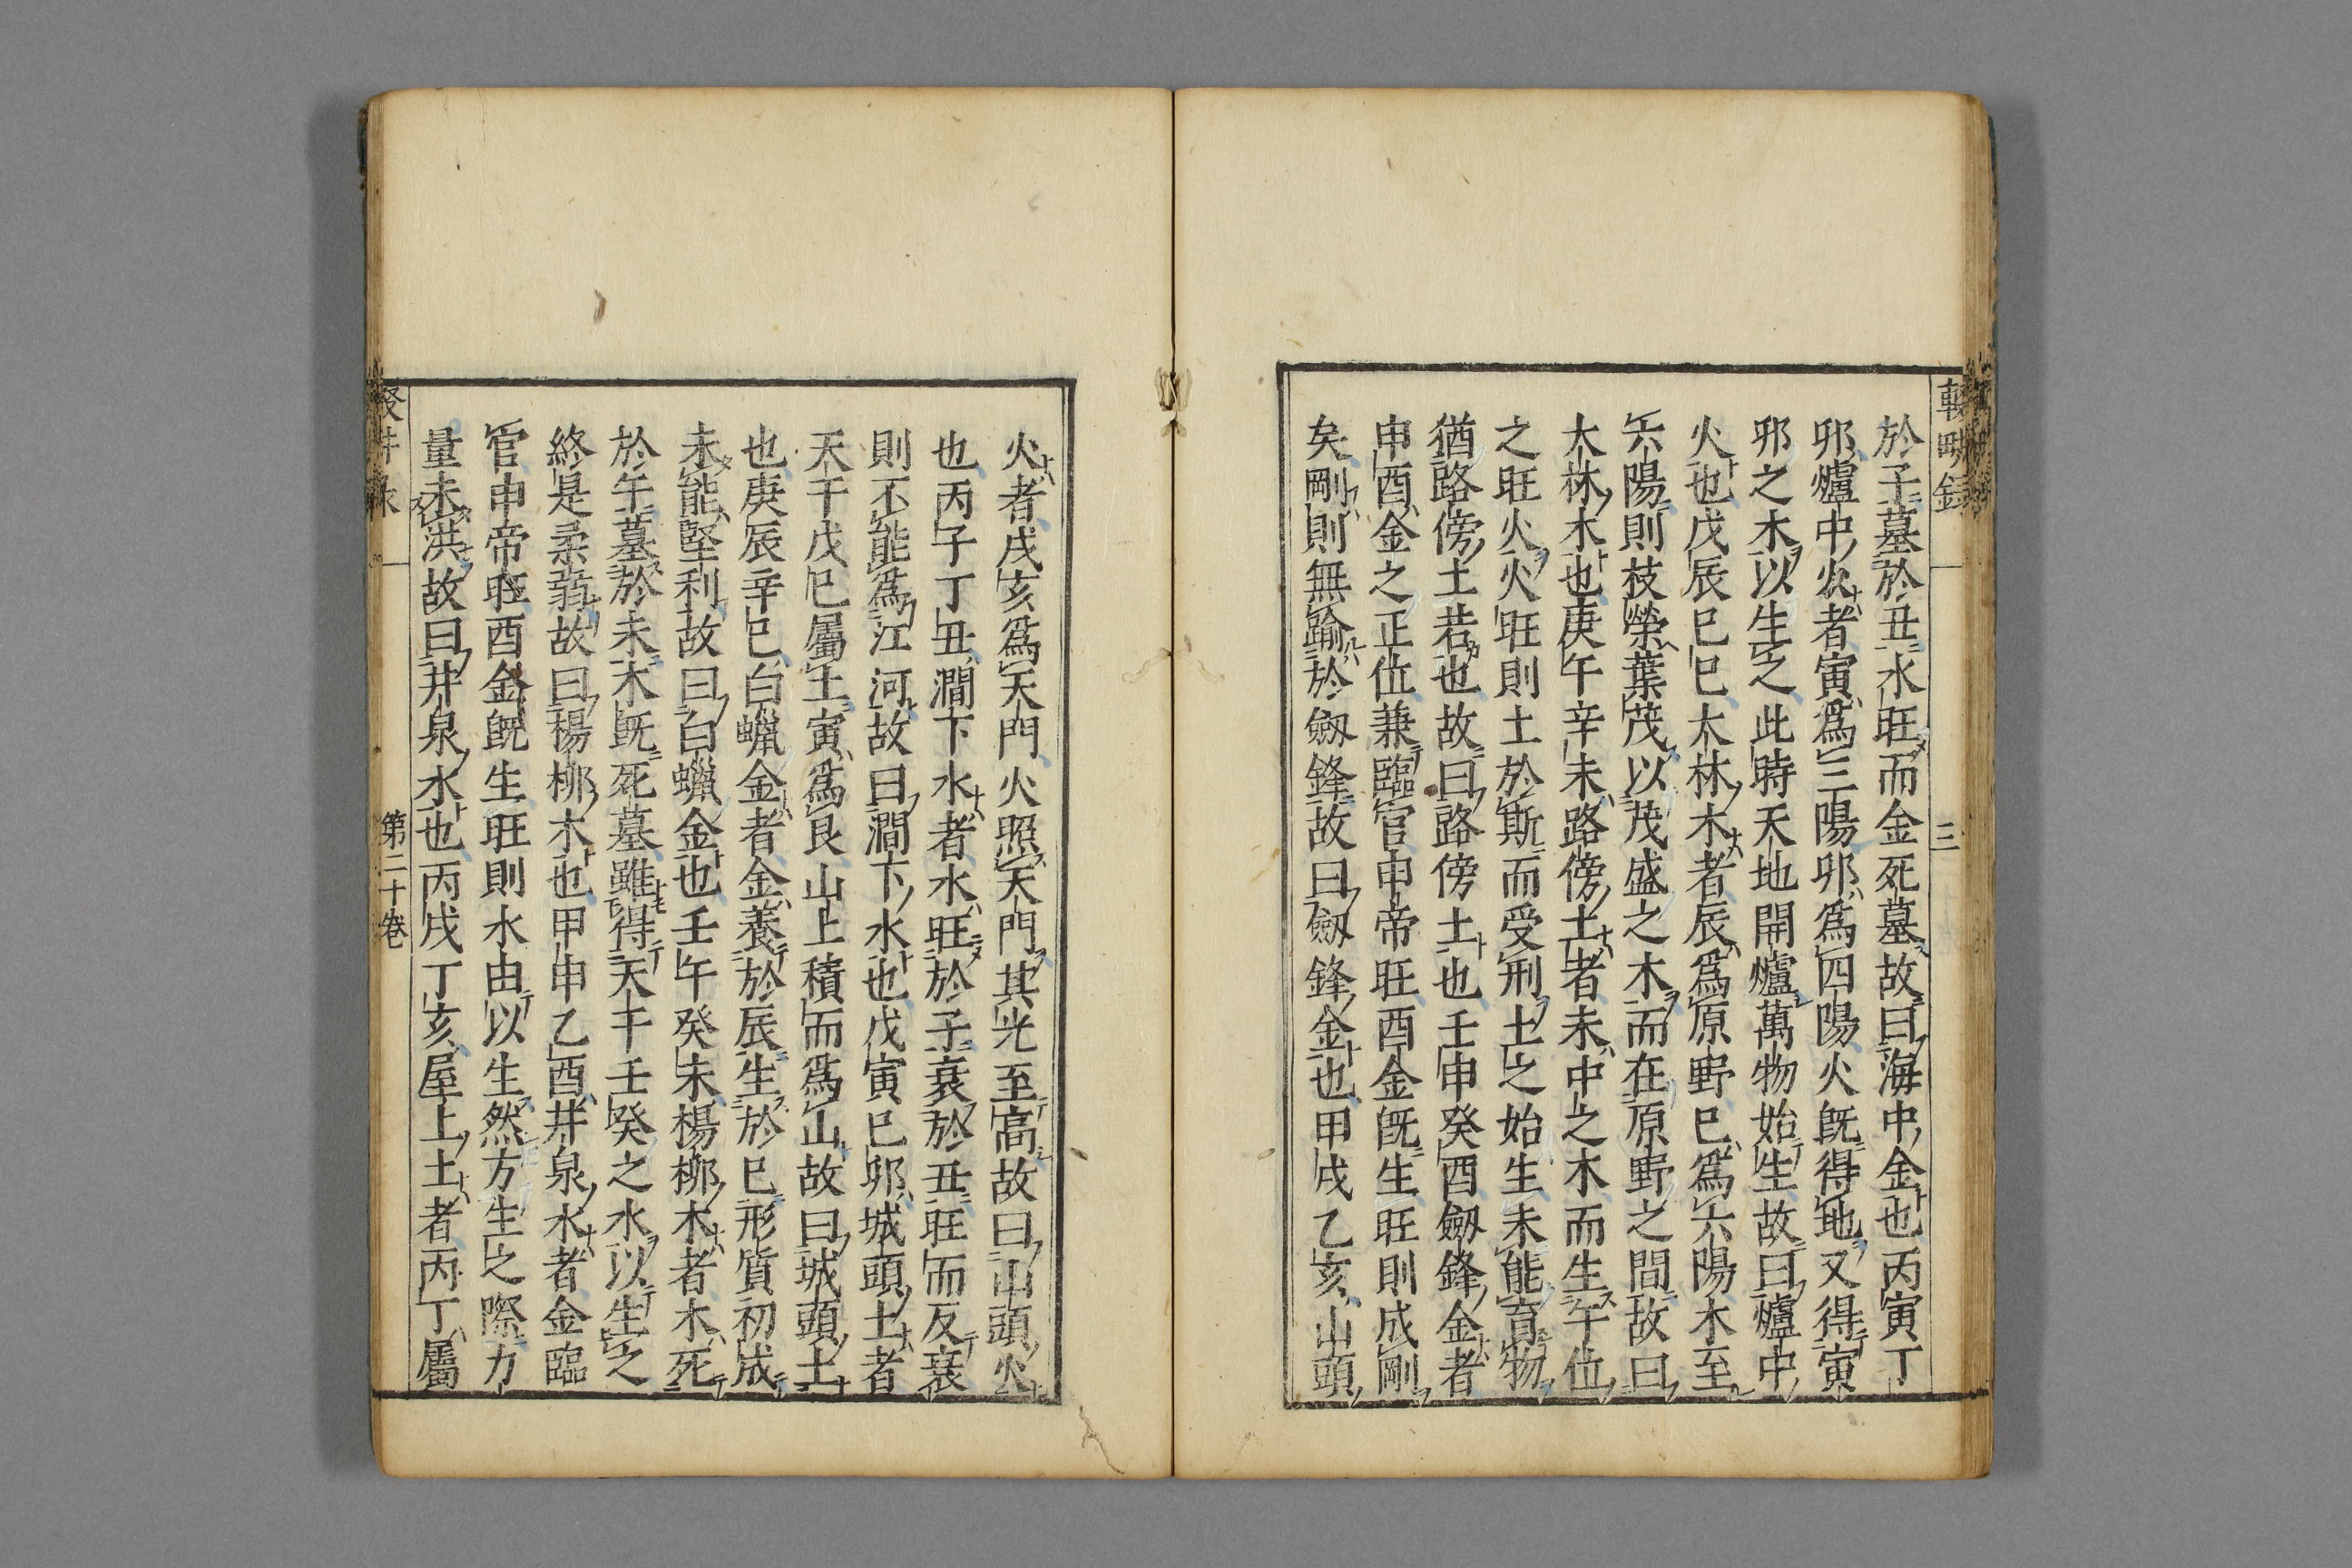 輟畊錄 三
於子墓於丑水旺而金死墓故曰海中金也丙寅丁
卯爐中火者寅爲三陽卯爲四陽火既得地又得寅
卯之木以生之此時天地開爐萬物始生故曰爐中
火也戊辰巳巳大林木者辰爲原野巳爲六陽木至
六陽則枝榮葉茂以茂盛之木而在原野之間故曰
大林木也庚午辛未路傍土者未中之木而生午位
之旺火火旺則土於斯而受刑土之始生未能育物
猶路傍土若也故曰路傍土也壬申癸酉劔鋒金者
申酉金之正位兼臨官申帝旺酉金既生旺則成剛
矣剛則無踰於劔鋒故曰劔鋒金也甲戌乙亥山頭
火者戌亥爲天門火照天門其光至高故曰山頭火
也丙子丁丑澗下水者水旺於子衰於丑旺而反衰
則不能爲江河故曰澗下水也戊寅巳卯城頭土者
天干戊巳屬土寅爲艮山土積而爲山故曰城頭土
也庚辰辛巳白蠟金者金養於辰生於巳形質初成
未能堅利故曰白蠟金也壬午癸未楊栁木者木死
於午墓於未木既死墓雖得天干壬癸之水以生之
終是柔蒻故曰楊栁木也甲申乙酉井泉水者金臨
官申帝旺酉金既生旺則水由以生然方生之際力
量未洪故曰井泉水也丙戌丁亥屋上土者丙丁屬
第二十卷